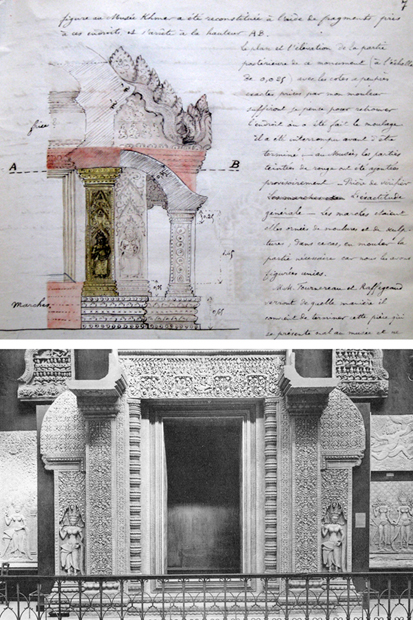 7
figure au Musée Khmer a été reconstituée à l'aide de fragments, pris
à ces endroits et s'arrête à la hauteur AB.
le plan et l'élévation de la partie
postérieure de ce monument (à l'échelle
de 0,025) avec les cotes
prises par
pour retrouver
l'endroit où a été fait le moulage
il a été interrompu avant d'être
terminé — au Musée les parties
teintées de rouge ont été ajoutées
provisoirement — Prière de vérifier
l'exactitude
générale — Les marches étaient
elles ornées de moulures et de sculp-
tures, dans ce cas, en mouler la
partie nécessaire car nous les avons
figurées unies.
M.M. Fournereau et Raffegeaud
verront de quelle manière il
convient de terminer cette pièce qui
se présente mal au musée et
face
A
B
Marches